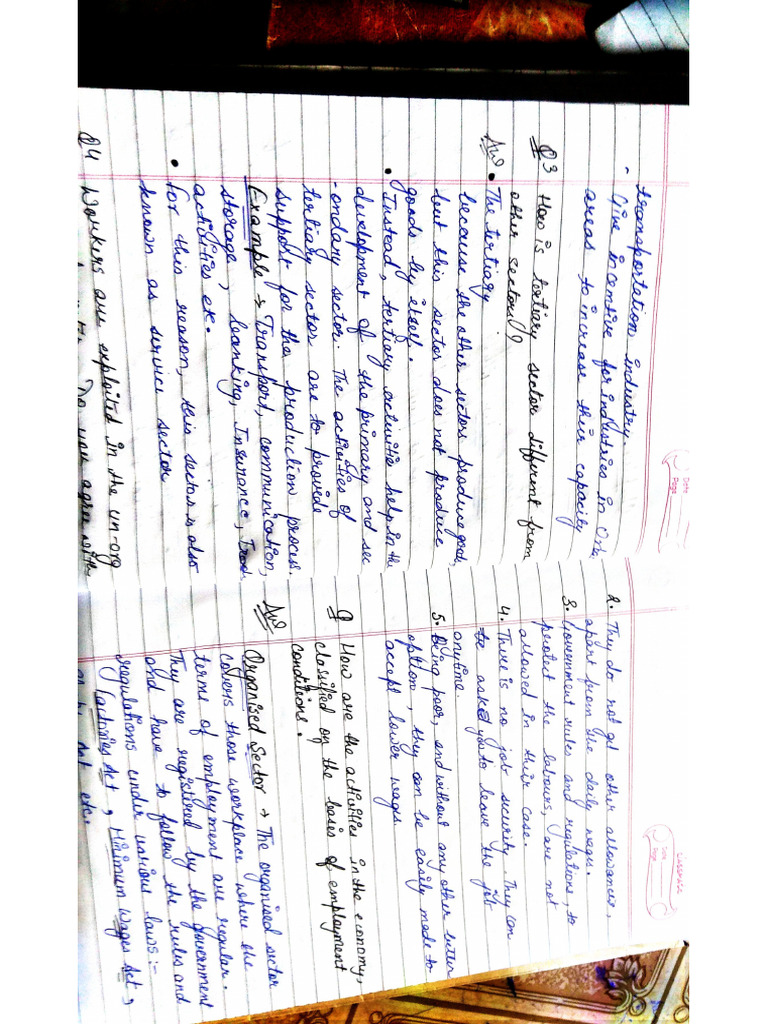 transportation industry
- Give incentive for industries in
areas to increase their capacity
Q3 How is tertiary sector different from
other sectors?
Ans • The tertiary
because the other sectors produce goods,
but this sector does not produce
goods by itself.
• Instead, tertiary activities help in the
development of the primary and sec
-ondary sector. The activities of
tertiary sector are to provide
support for the production process.
Example → Transport, communication,
storage, banking, Insurance, Trade
activities etc.
• For this reason, this sector is also
known as service sector
Q4 Workers are exploited in the un-org
Do you agree with
Date
Page
classmate
Date
Page
2. They do not get other allowances,
apart from the daily wages.
3. Government rules and regulations, to
protect the labours, are not
allowed in their case.
4. There is no job security. They can
be asked you to leave the job
anytime.
5. Being poor, and without any other better
option, they can be easily made to
accept lower wages.
Q How are the activities in the economy,
classified on the basis of employment
conditions.
Ans Organised Sector → The organised sector
covers those workplace where the
terms of employment are regular.
They are registered by the government
and have to follow the rules and
regulations under various laws:-
Factories Act, Minimum Wages Act,
Act etc.